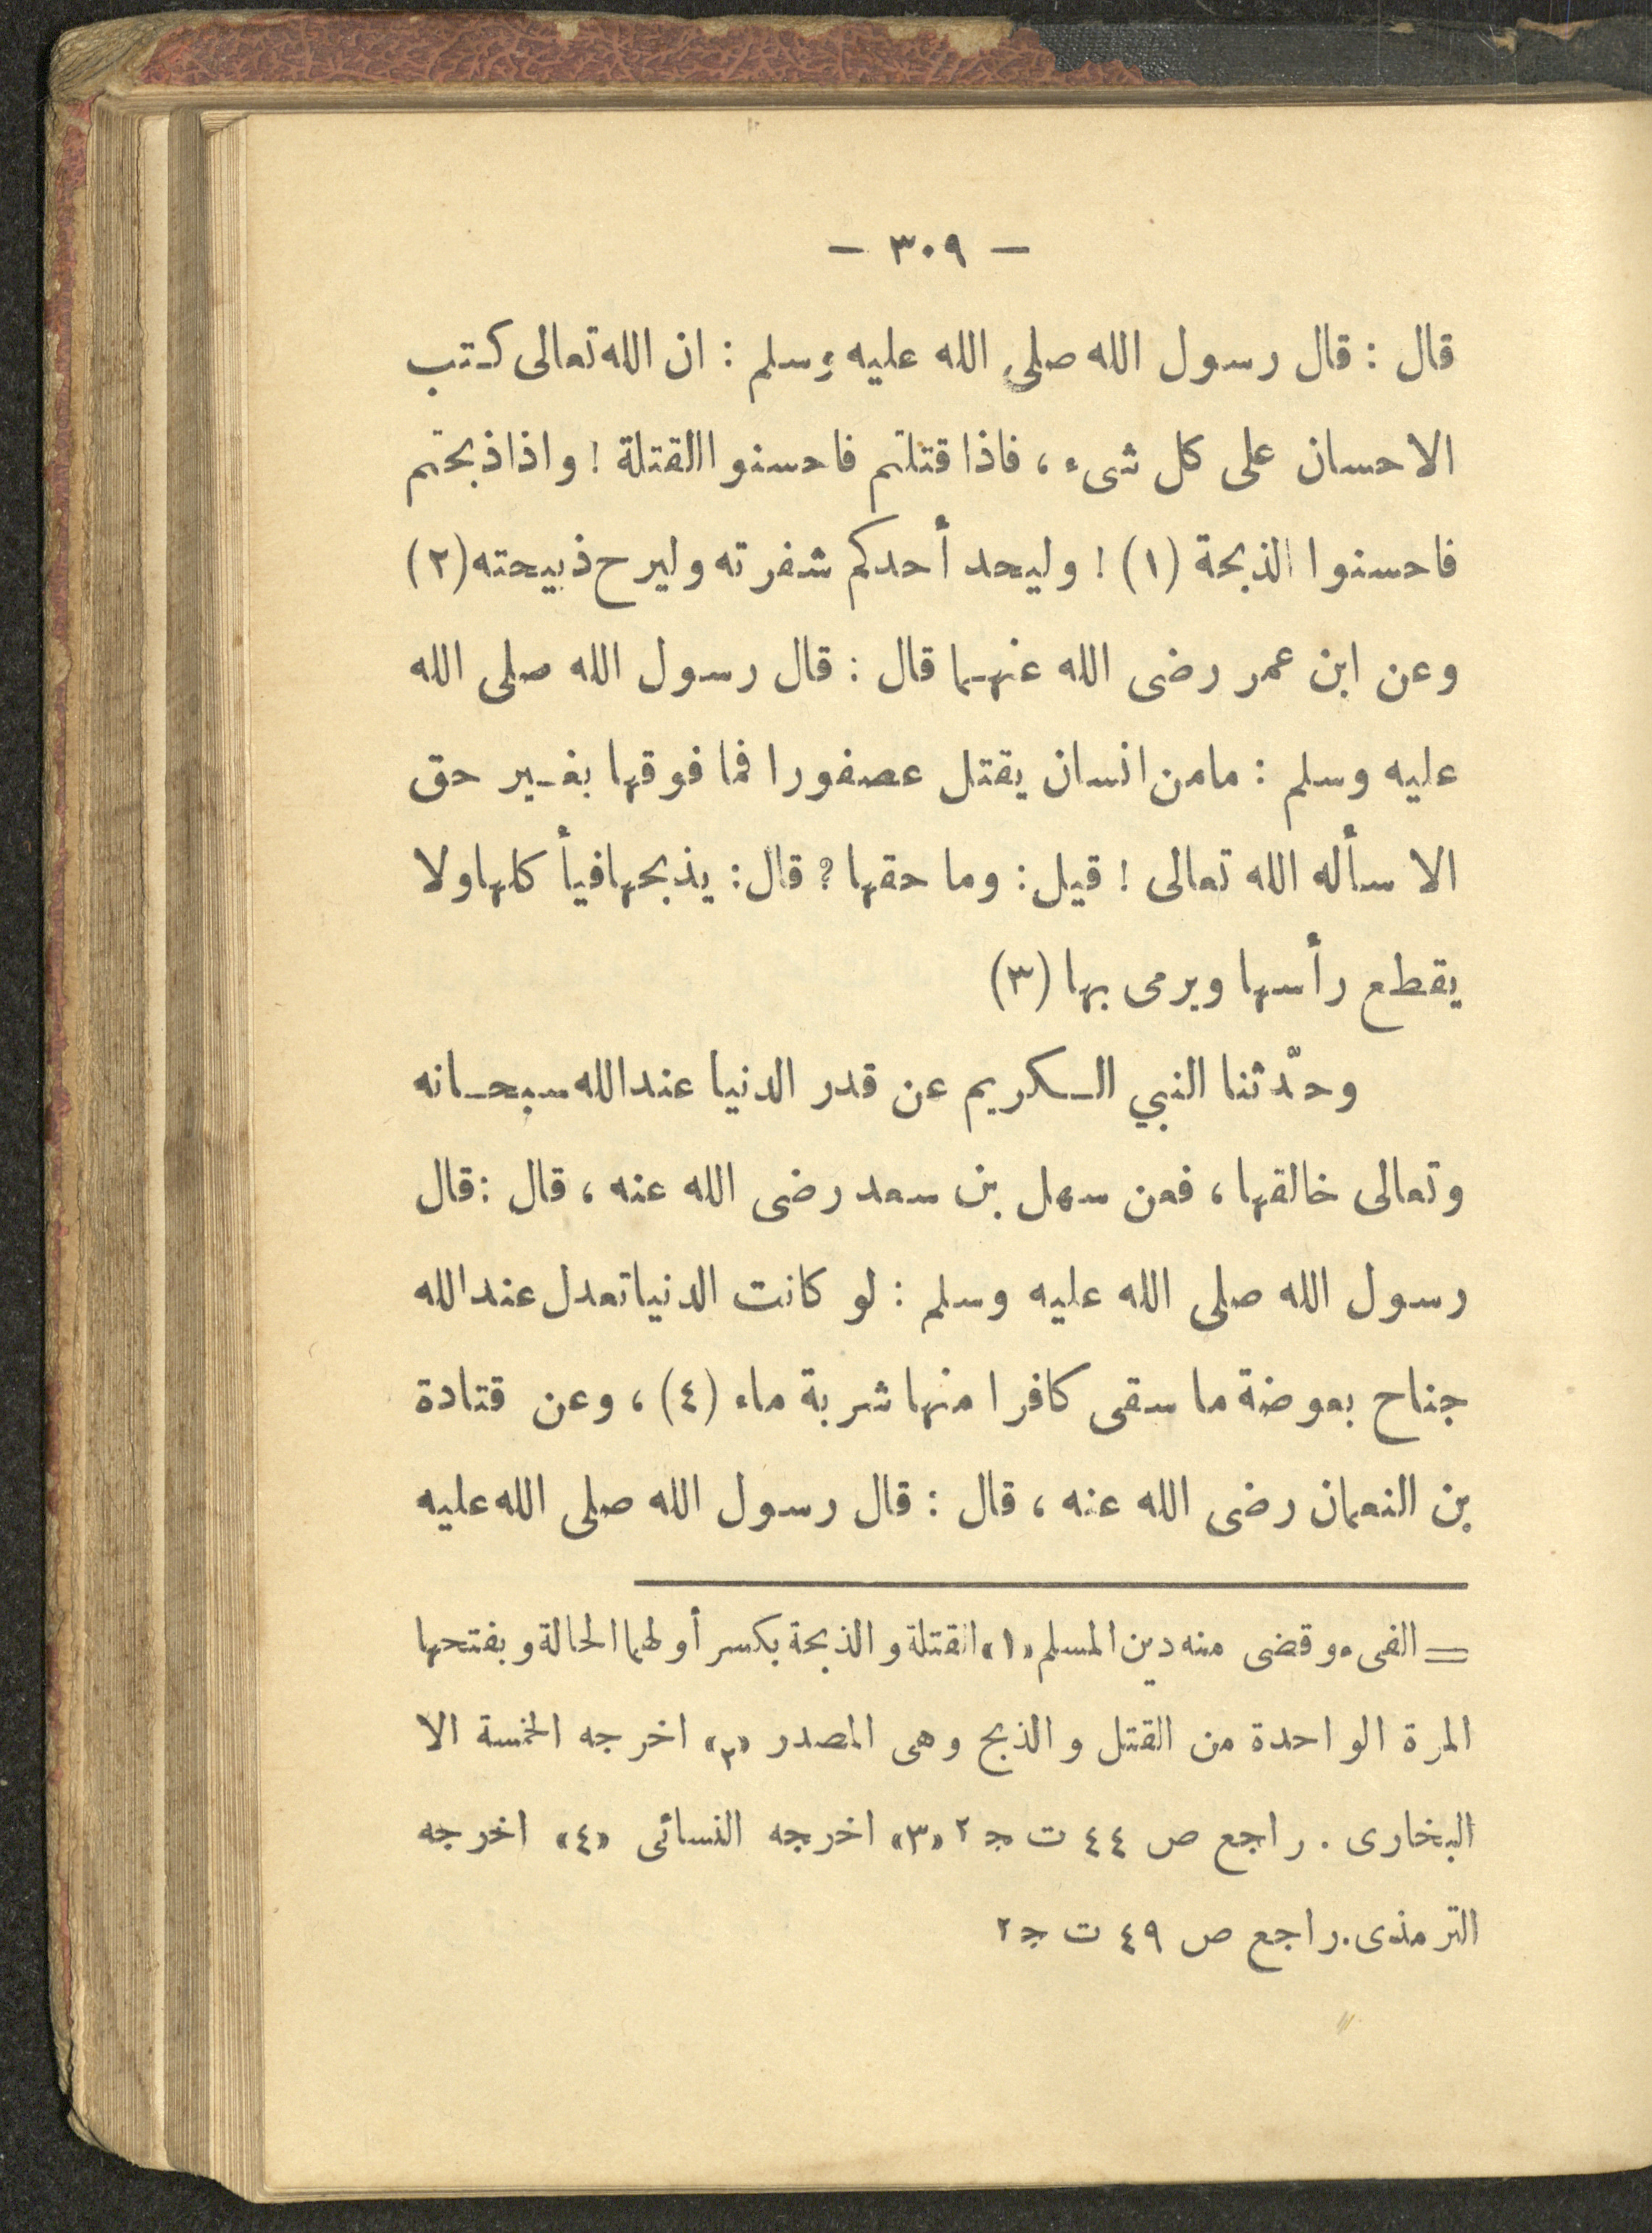 — ٣٠٩ —
قال : قال رسول الله صلى الله عليه وسلم : ان الله تعالى كتب
الاحسان على كل شىء ، فاذا قتلتم فاحسنوا القتلة ! واذا ذبحتم
فاحسنوا الذبحة (١) ! وليحد أحدكم شفرته وليرح ذبيحته (٢)
وعن ابن عمر رضى الله عنهما قال : قال رسول الله صلى الله
عليه وسلم : مامن انسان يقتل عصفورا فما فوقها بغير حق
الا سأله الله تعالى ! قيل : وما حقها ? قال : يذبحها فيأكلها ولا
يقطع رأسها ويرمى بها (٣)
وحدّثنا النبي الكريم عن قدر الدنيا عند الله سبحانه
وتعالى خالقها ، فعن سهل بن سعد رضى الله عنه ، قال : قال
رسول الله صلى الله عليه وسلم : لو كانت الدنيا تعدل عند الله
جناح بعوضة ما سقى كافرا منها شربة ماء (٤) ، وعن قتادة
بن النعمان رضى الله عنه ، قال : قال رسول الله صلى الله عليه
= الفىء وقضى منه دين المسلم «١» القتلة والذبحة بكسر أولهما الحالة وبفتحها
المرة الواحدة من القتل والذبح وهى المصدر «٢» اخرجه الخمسة الا
البخارى . راجع ص ٤٤ ت ج ٢ «٣» اخرجه النسائى «٤» اخرجه
الترمذى . راجع ص ٤٩ ت ج ٢